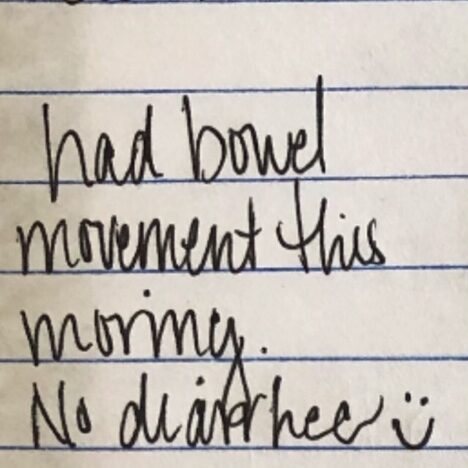 had bowel
movement this
moring.
No diarrhee :)